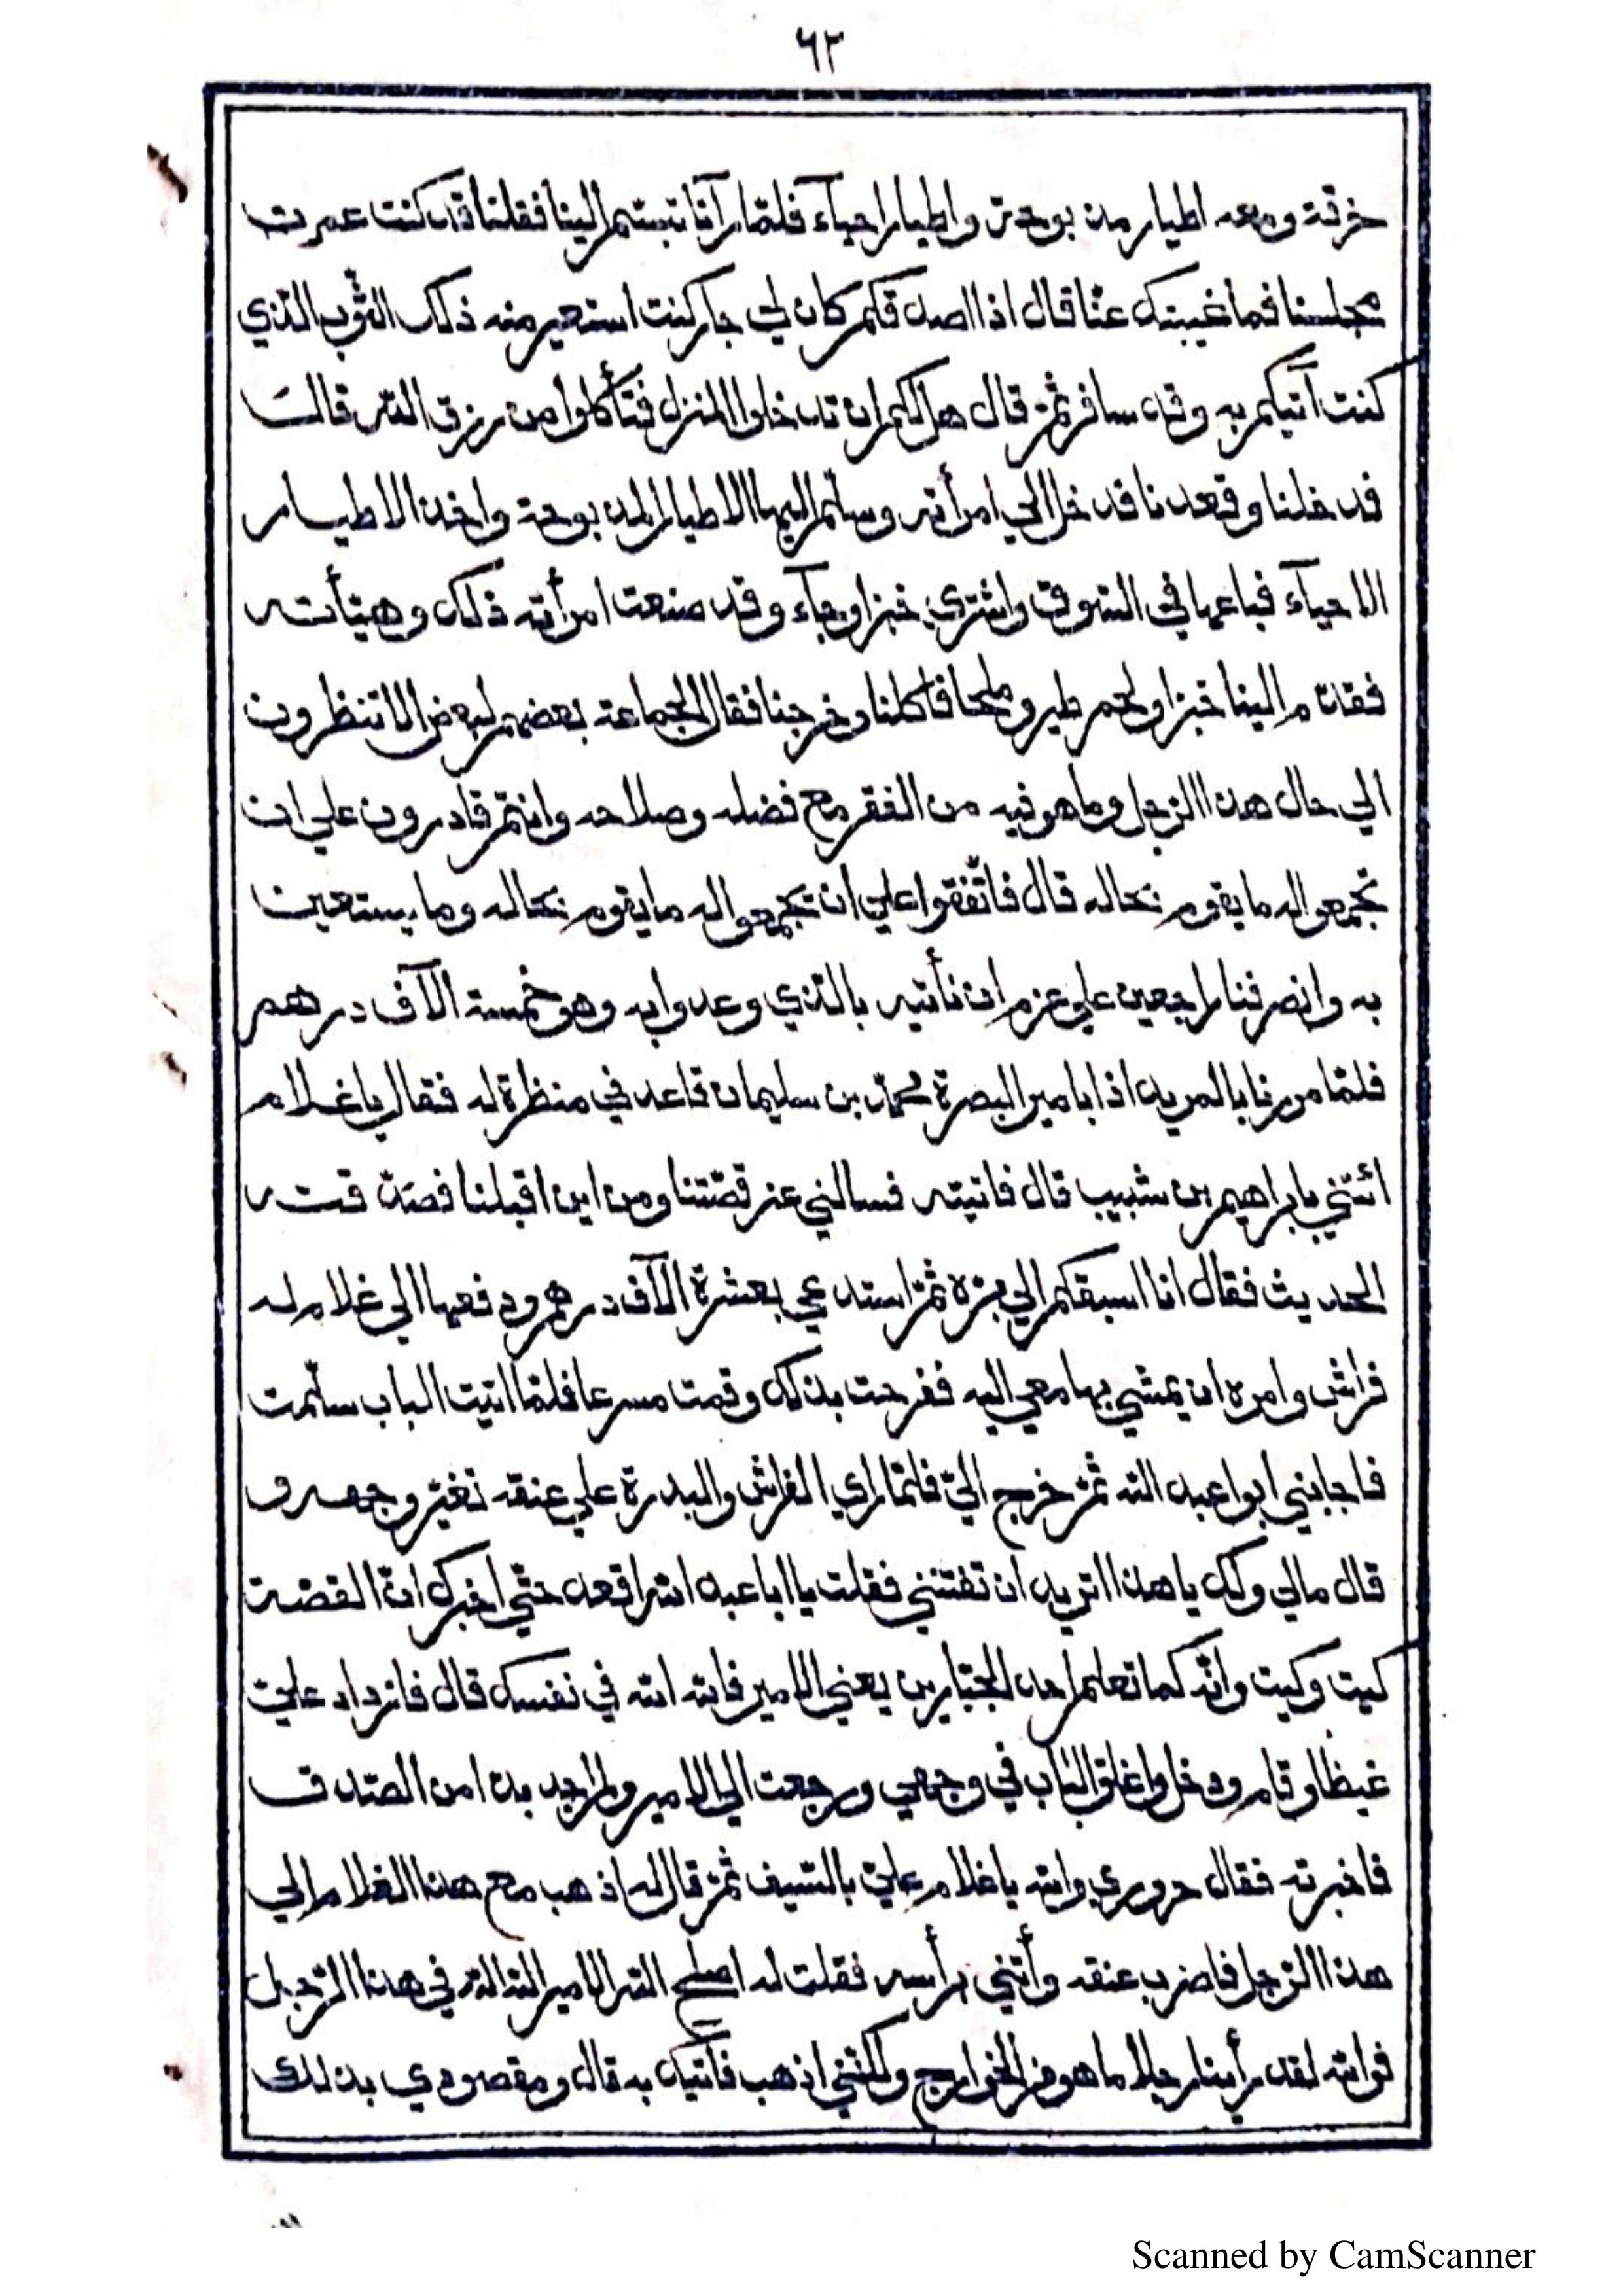 ٦٢
خرقة ومعه اطيار مذبوحة واطيار احياء فلمّا رآنا تبسّم الينا فقلنا قد كنت عمرت
مجلسنا فما غيبتك عنّا قال اذا اصدقكم كان لي جار كنت استعير منه ذلك الثّوب الّذي
كنت آتيكم به وقد سافر ثمّ قال هل لكم ان تدخلوا المنزل فتأكلوا من رزق اللّه قالت
فدخلنا وقعدنا فدخل الي امرأته وسلّم اليها الاطيار المذبوحة واخذ الاطيار
الاحيآء فباعها في السّوق واشتري خبزا وجآء وقد صنعت امرأته ذلك وهيّأته
فقدّم الينا خبزا ولحم طير وملحا فاكلنا وخرجنا فقال الجماعة بعضهم لبعض الا تنظرون
الي حال هذا الرّجل وما هو فيه من الفقر مع فضله وصلاحه وانتمّ قادرون علي ان
تجمعوا له ما يقوم بحاله قال فاتّفقوا علي ان يجمعوا له ما يقوم بحاله وما يستعين
به وانصرفنا راجعين علي عزم ان نأتيه بالّذي وعدوا به وهو خمسة الآف درهم
فلمّا مررنا بالمريد اذا بامير البصرة محمّد بن سليمان قاعد في منظرة له فقال يا غلام
ائتني بابراهيم بن شبيب قال فاتيته فسالني عن قصّتنا ومن اين اقبلنا فصدّقته
الحديث فقال انا اسبقكم الي برّه ثمّ استدعي بعشرة الآف درهم ودفعها الي غلام له
فراش وامره ان يمشي بها معي اليه ففرحت بذلك وقمت مسرعا فلمّا اتيت الباب سلّمت
فاجابني ابوا عبد اللّه ثمّ خرج اليّ فلمّا راي الفراش والبدرة علي عنقه تغيّر وجهه و
قال مالي ولك يا هذا اتريد ان تفتنني فقلت يا ابا عبد اللّه اقعد حتّي اخبرك انّ القصّة
كيت وكيت وانّه كما تعلم احد الجبّارين يعني الامير فاللّه اللّه في نفسك قال فازداد عليّ
غيظا وقام ودخل واغلق الباب في وجهي ورجعت الي الامير ولم اجد بدا من الصّدق
فاخبرته فقال حروري واللّه يا غلام عليّ بالسّيف ثمّ قال له اذهب مع هذا الغلام الي
هذا الرّجل فاضرب عنقه وأتني برأسه فقلت له اصلح اللّه الامير اللّه اللّه في هذا الرّجل
فواللّه لقد رأينا رجلا ما هو من الخوارج ولكنّني اذهب فآتيك به قال ومقصودي بذلك
Scanned by CamScanner